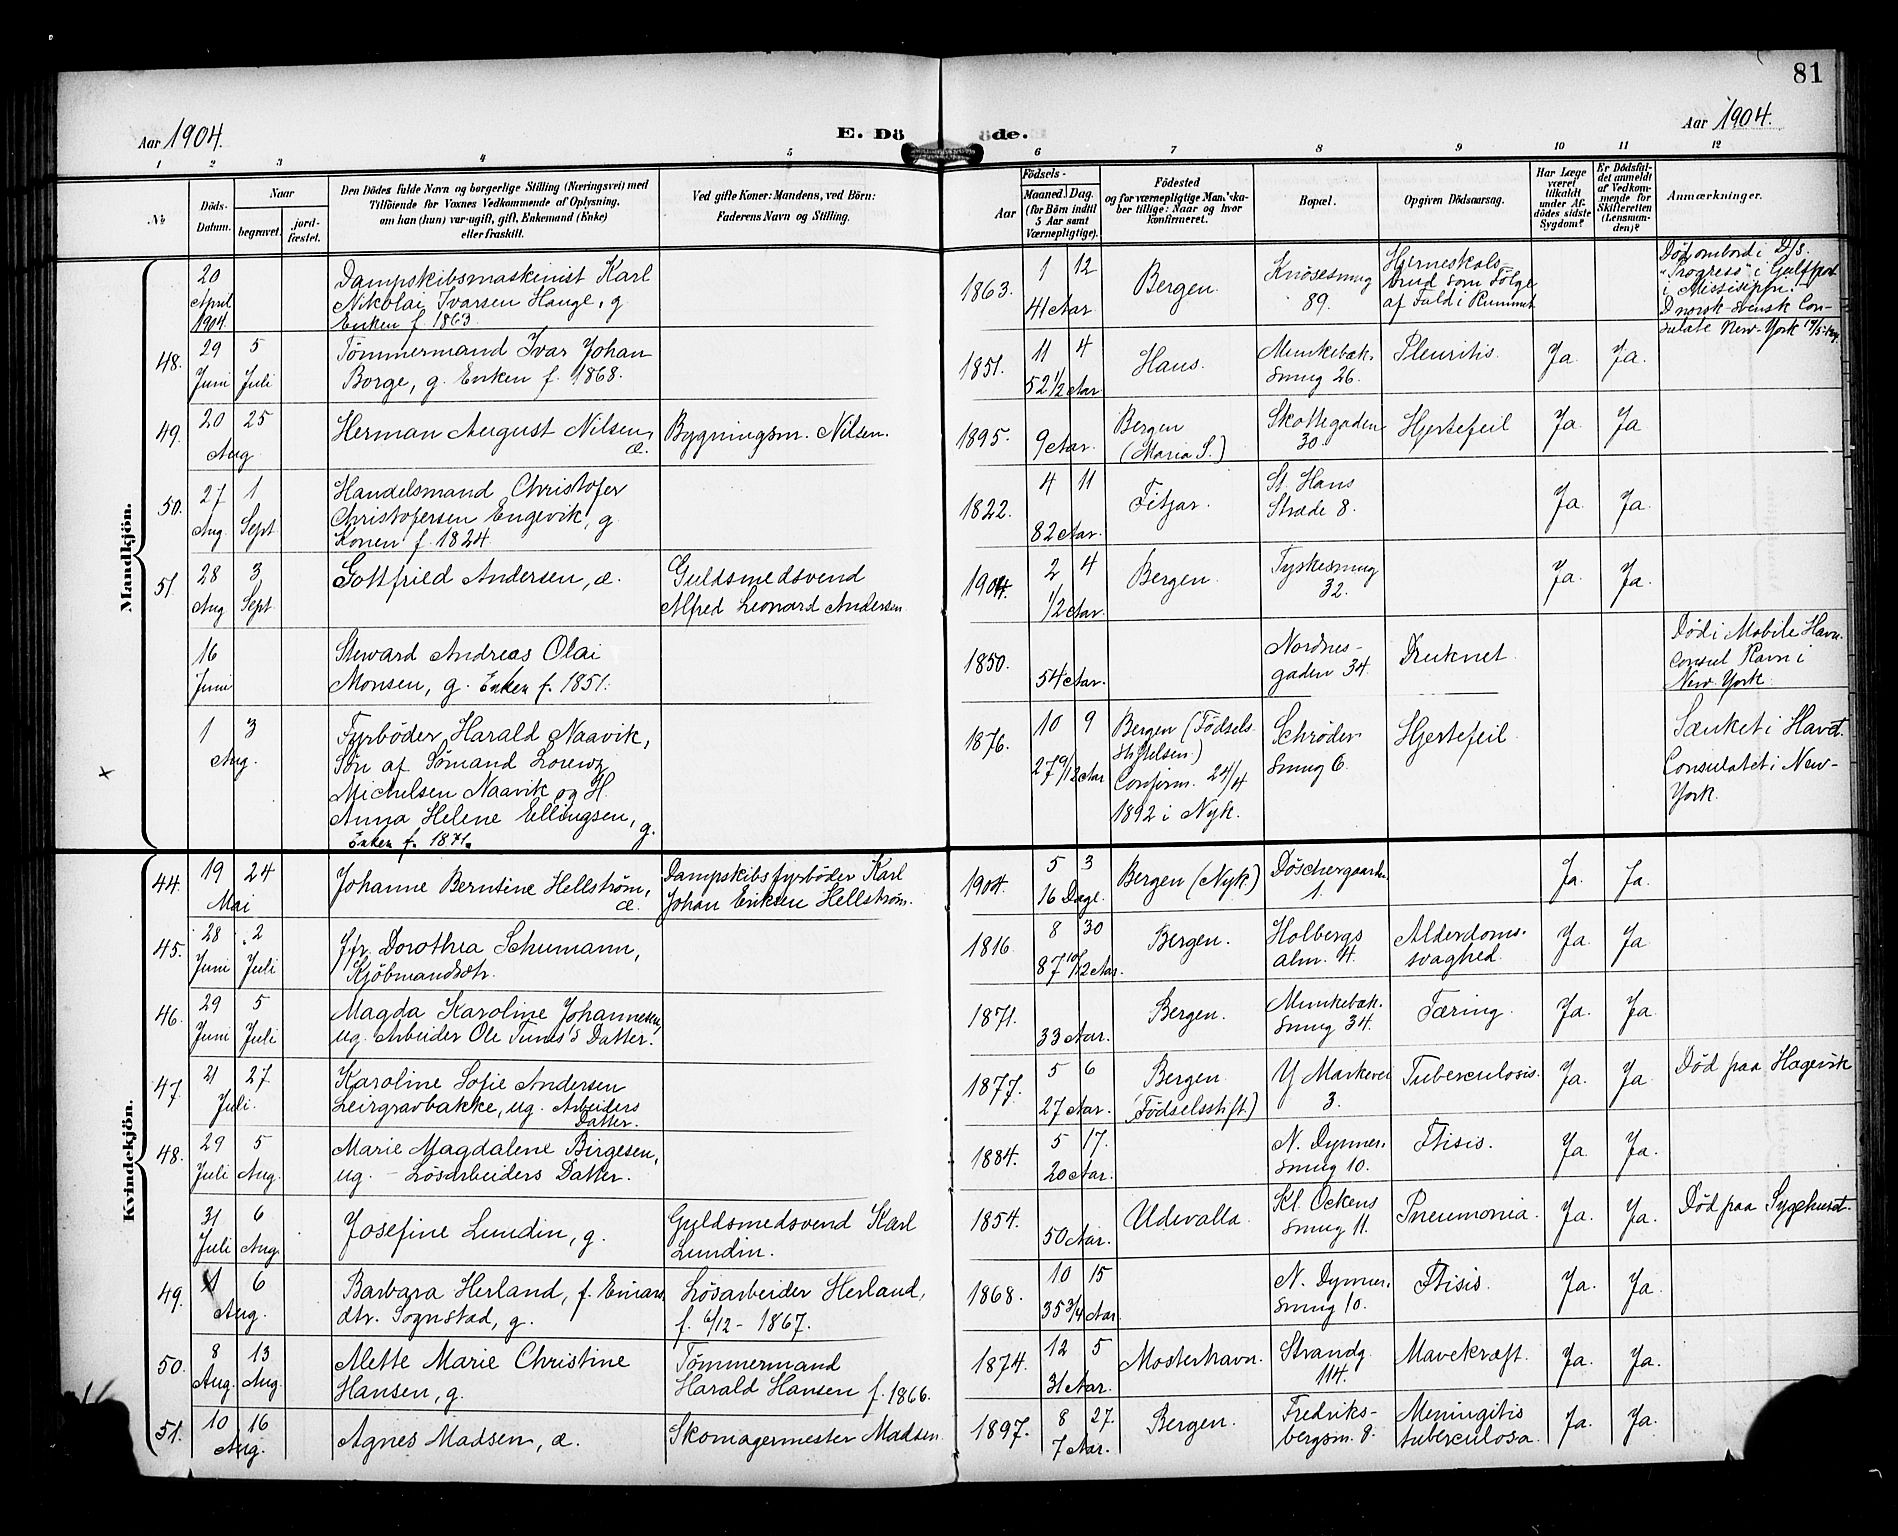 81
Aar 1904.
E. Dö
öde.
Aar 1904.
1 2 3 4 5 6 7 8 9 10 11 12
No
Döds-
Datum.
Naar
begravet.
jord-
fæstet.
Den Dödes fulde Navn og borgerlige Stilling (Næringsvei) med
Tilföiende for Voxnes Vedkommende af Oplysning,
om han (hun) var ugift, gift, Enkemand (Enke)
eller fraskilt.
Ved gifte Koner: Mandens, ved Börn:
Faderens Navn og Stilling.
Födsels-
Aar
Maaned. Dag.
(for Börn indtil
5 Aar samt
Værnepligtige).
Födested
og for værnepligtige Mandska-
ber tillige: Naar og hvor
konfirmeret.
Bopæl.
Opgiven Dödsaarsag.
Har Læge
været
tilkaldt
under Af-
dödes sidste
Sygdom?
Er Dödsfal-
det anmeldt
af Vedkom-
mende for
Skifteretten
(Lensman-
den)?
Anmærkninger.
Mandkjön.
20
April
1904.
Dampskibsmaskinist Karl
Nikolai Ivarsen Hauge, g
Enken f. 1863.
1863.
1 12
41 Aar
Bergen.
Knösesmug
89.
Hjerneskals-
brud som Fölge
af Fald i Rummet
Död ombord i D/S.
"Progress" i Gulfport
i Missisippi.
D norsk-svensk Con-
sulate New-York
48.
29 5
Juni Juli
Tömmermand Ivar Johan
Borge, g. Enken f. 1868.
1851.
11 4
52 1/2 Aar
Haus.
Munkebæk-
smug 26.
Pleuritis.
Ja. Ja.
49.
20 25
Aug
Herman August Nilsen,
æ.
Bygningsm. Nilsen.
1895.
9 Aar.
Bergen
(Maria S.)
Skottegaden
30.
Hjertefeil
Ja. Ja
50.
27 1
Aug. Sept
Handelsmand Christofer
Christofersen Engevik, g.
Konen f. 1824.
1822.
4 11
82 Aar.
Fitjar.
St. Hans
Stræde 8.
Ja. Ja.
51.
28 3
Aug Sept
Gottfried Andersen, æ.
Guldsmedsvend
Alfred Leonard Andersen
1904.
2 4
1/2 Aar.
Bergen.
Tyskesmug
32.
Ja. Ja.
16
Juni
Steward Andreas Olai
Monsen, g. Enken f. 1851.
1850.
54 Aar.
Nordnes-
gaden 34
Druknet.
Död i Mobile Havn.
Consul Ravn i
New York.
1 3
Aug.
Fyrböder Harald Naavik,
Sön af Sömand Lorentz
Michelsen Naavik og H.
Anna Helene Ellingsen, g.
Enken f. 1871.
1876.
10 9
27 9/12 Aar
Bergen (Födsels
stiftelsen.)
Confirm. 24/4
1892 i Nyk.
Schröder
smug 6.
Hjertefeil.
Sænket i Havet.
Consulatet i New-
York.
Kvindekjön.
44.
19 24
Mai
Johanne Berntine Hellström,
æ.
Dampskibsfyrböder Karl
Johan Eriksen Hellström.
1904.
5 3
16 Dage.
Bergen (Nyk.)
Döschergaarden
1.
Ja. Ja.
45.
28 2
Juni Juli
Jfr. Dorothea Schumann,
Kjöbmandsdtr.
1816
8 30
87 10/12 Aar.
Bergen.
Holbergs
alm. 4.
Alderdoms-
svaghed.
Ja. Ja
46.
29 5
Juni Juli
Magda Karoline Johannesen
ug. Arbeider Ole Tunes's Datter.
1871.
33 Aar.
Bergen.
Munkebæk-
smug 34.
Tæring.
Ja. Ja
47.
21 27
Juli.
Karoline Sofie Andersen
Leirgravbakke, ug. Arbeiders
Datter.
1877.
5 6
27 Aar.
Bergen
(Födselsstift.)
Y Markevei
3.
Tuberculosis.
Ja. Ja
Död paa Hagevik
48.
29 5
Juli Aug.
Marie Magdalene Birgesen,
ug. - Lösarbeiders Datter.
1884.
5 17.
20 Aar.
N. Dynner-
smug 10.
Ftisis.
Ja Ja.
31 6
Juli Aug.
Josefine Lundin, g.
Guldsmedsvend Karl
Lundin.
1854.
50 Aar.
Udevalla.
Kl. Öckens
smug 11.
Pneumonia.
Ja. Ja.
Död paa Sygehuset.
49.
1 6
Aug.
Barbara Herland, f. Einars
dtr. Sognstad, g.
Lösarbeider Herland,
f. 6/12 - 1867.
1868.
10 15
35 3/4 Aar.
N. Dynner-
smug 10.
Ftisis.
Ja. Ja.
50.
8 13
Aug. Aug.
Alette Marie Christine
Hansen, g.
Tömmermand
Harald Hansen f. 1866.
1874.
12 5
31 Aar.
Mosterhavn.
Strandg.
114.
Mavekræft.
Ja. Ja.
51.
10 16
Aug.
Agnes Madsen, æ.
Skomagermester Madsen
1897.
8 27.
7 Aar.
Bergen.
Fredriks-
bergsm. 8.
Meningitis
tuberculosa.
Ja. Ja.